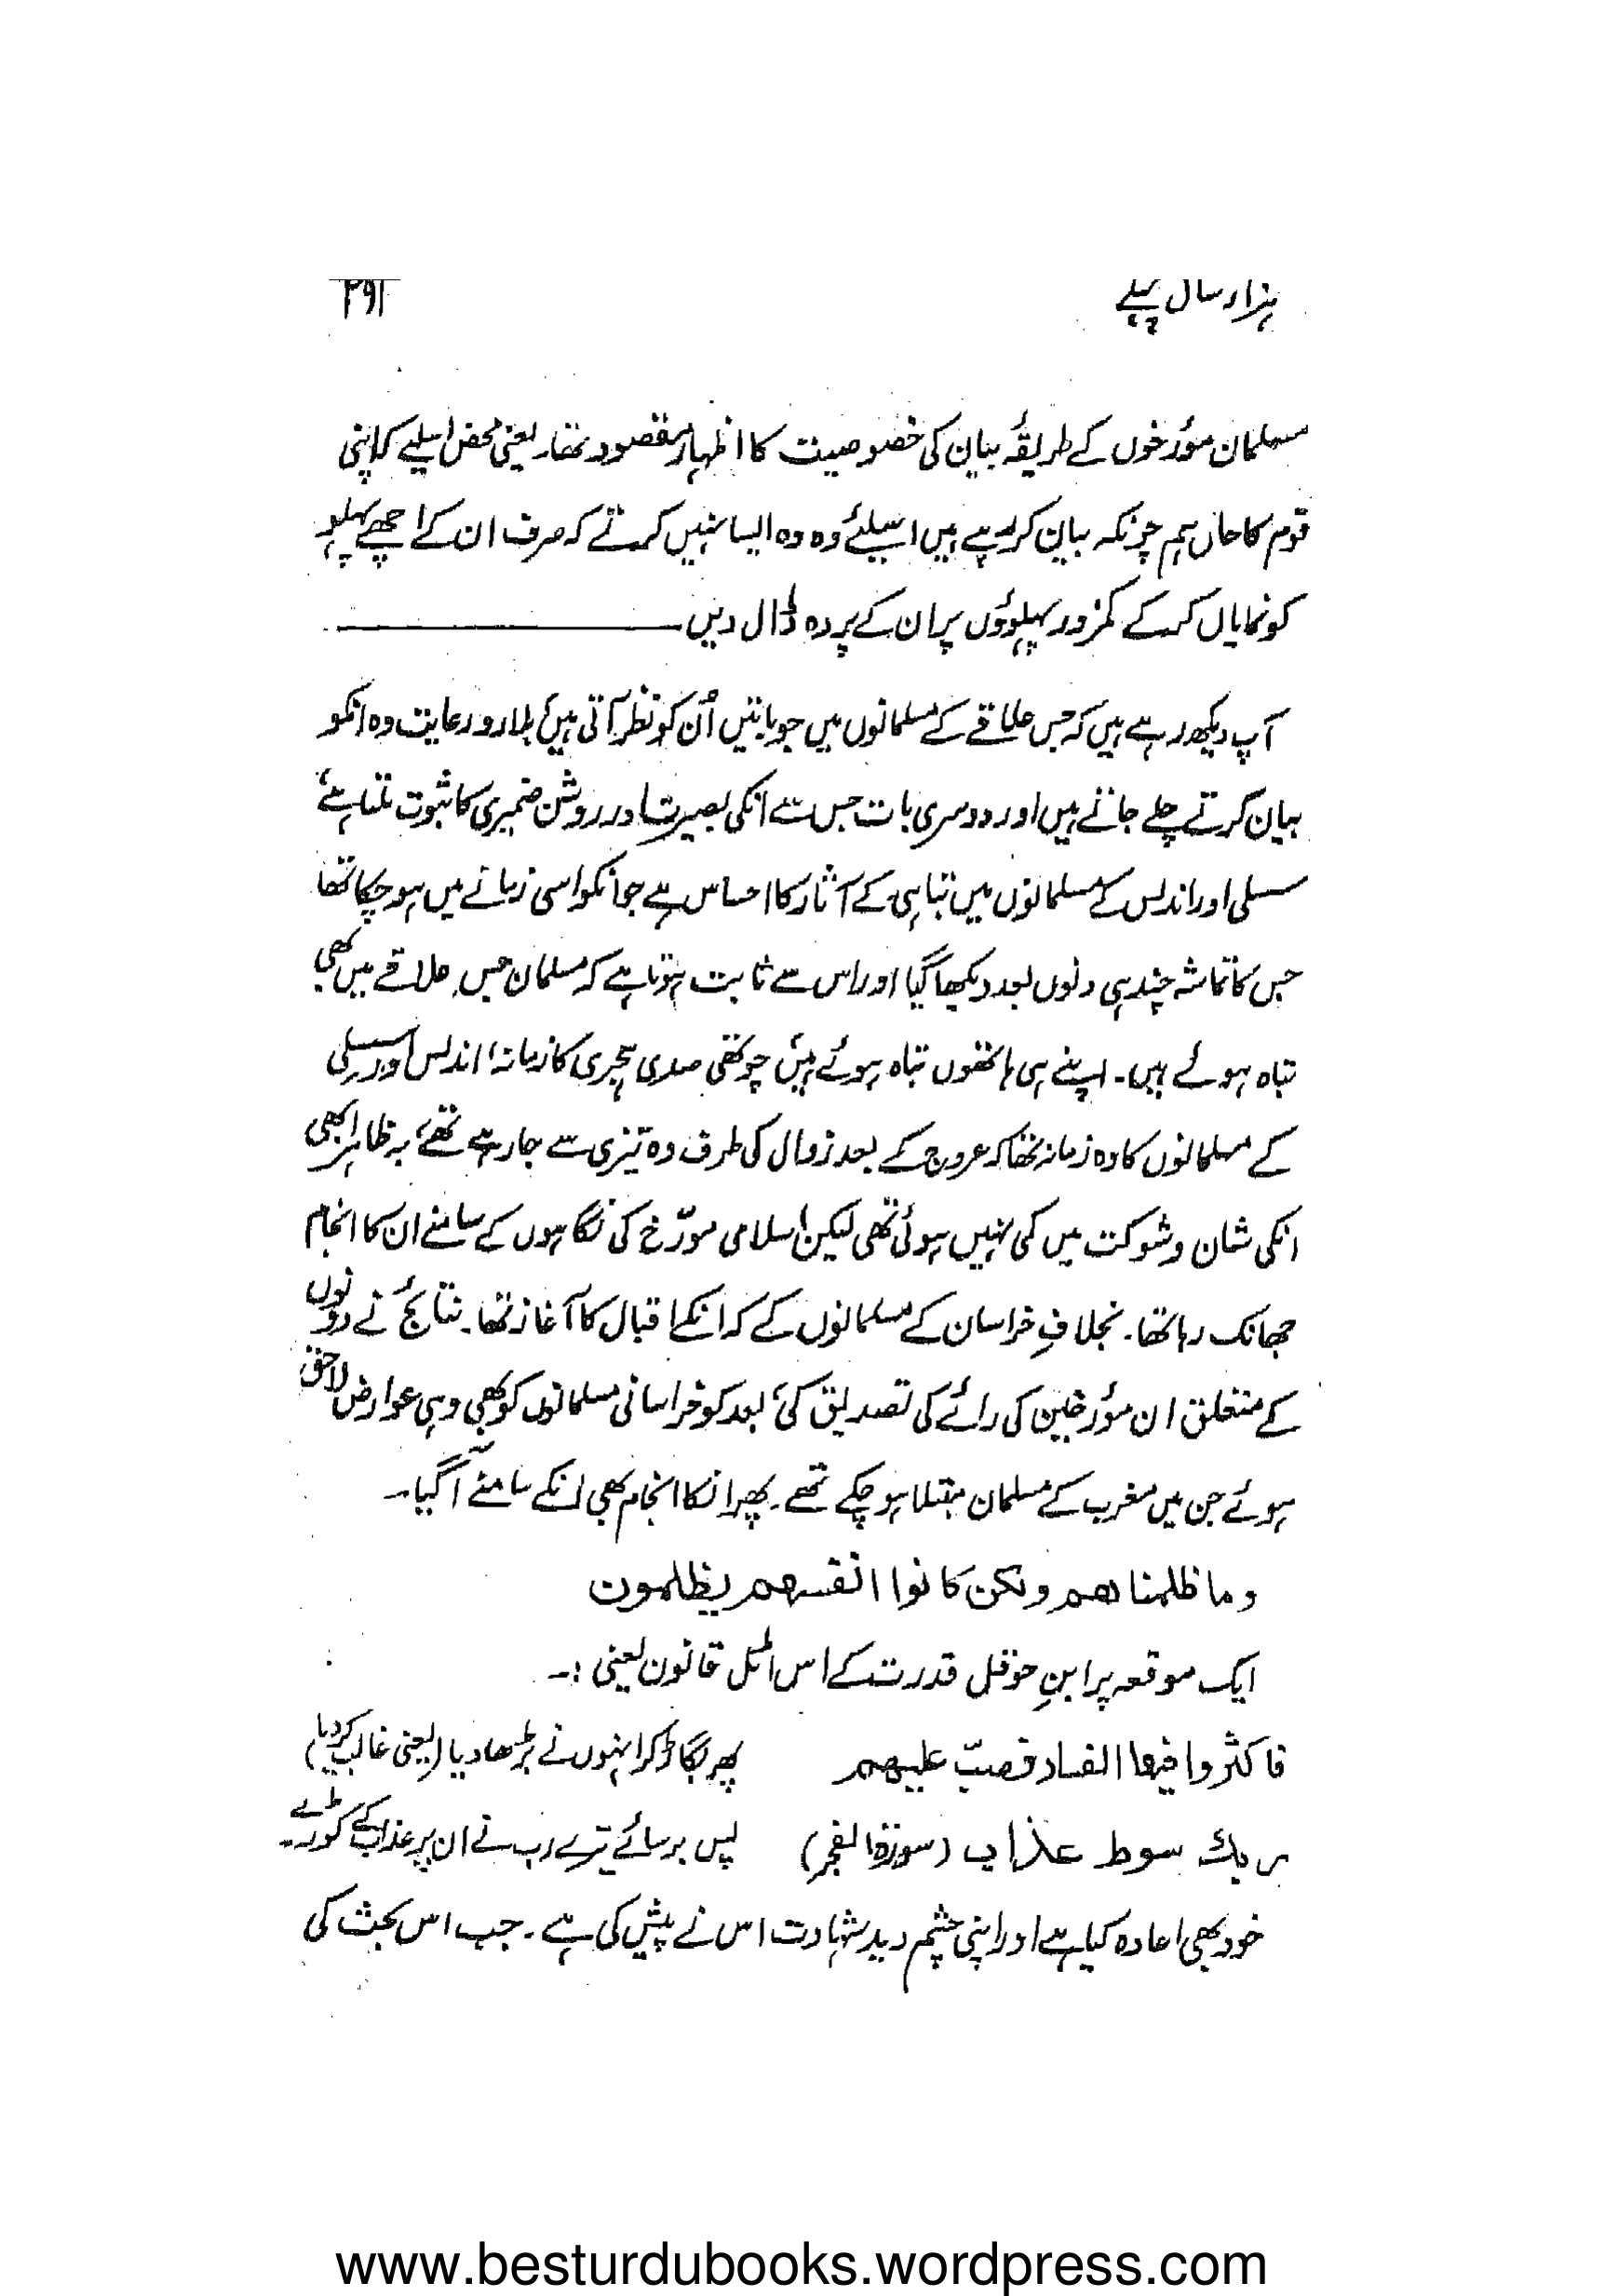 ہزار سال پہلے
۲۹۱
مسلمان مؤرخوں کے طریقۂ بیان کی خصوصیت کا اظہار مقصود تھا، یعنی محض اسلیے کہ اپنی
قوم کا حال ہم چونکہ بیان کر رہے ہیں اسیلئے وہ وہ ایسا نہیں کرتے کہ صرف ان کے اچھے پہلو
کو نمایاں کر کے کمزور پہلوؤں پر ان کے پردہ ڈال دیں ــــــــــــــــ
آپ دیکھ رہے ہیں کہ جس علاقے کے مسلمانوں میں جو باتیں اُن کو نظر آتی ہیں، بلا رو رعایت وہ انکو
بیان کرتے چلے جاتے ہیں اور دوسری بات جس سے انکی بصیرت اور روشن ضمیری کا ثبوت ملتا ہے،
سسلی اور اندلس کے مسلمانوں میں تباہی کے آثار کا احساس ہے جو انکو اسی زمانے میں ہو چکا تھا
جس کا تماشہ چند ہی دنوں بعد دیکھا گیا اور اس سے ثابت ہوتا ہے کہ مسلمان جس علاقے میں بھی
تباہ ہوئے ہیں۔ اپنے ہی ہاتھوں تباہ ہوئے ہیں، چوتھی صدی ہجری کا زمانہ، اندلس اور سسلی
کے مسلمانوں کا وہ زمانہ تھا کہ عروج کے بعد زوال کی طرف وہ تیزی سے جا رہے تھے، بہ ظاہر ابھی
انکی شان و شوکت میں کمی نہیں ہوئی تھی لیکن اسلامی مورّخ کی نگاہوں کے سامنے ان کا انجام
جھانک رہا تھا۔ بخلافِ خراسان کے مسلمانوں کے کہ انکے اقبال کا آغاز تھا۔ نتائج نے دونوں
کے متعلق ان مؤرخین کی رائے کی تصدیق کی، بعد کو خراسانی مسلمانوں کو بھی وہی عوارض لاحق
ہوئے جن میں مغرب کے مسلمان مبتلا ہو چکے تھے۔ پھر انکا انجام بھی انکے سامنے آگیا۔
وما ظلمناهم ولكن كانوا انفسهم يظلمون
ایک موقعہ پر ابنِ حوقل قدرت کے اس اٹل قانون یعنی :۔
فاكثروا فيها الفساد فصبّ عليهم پھر بگاڑ کو انہوں نے بڑھا دیا (یعنی غالب کر دیا)
ربك سوط عذاب (سورۃ الفجر) پس برسائے تیرے رب نے ان پر عذاب کے کوڑے۔
خود بھی اعادہ کیا ہے اور اپنی چشم دید شہادت اس نے پیش کی ہے۔ جب اس بحث کی
www.besturdubooks.wordpress.com